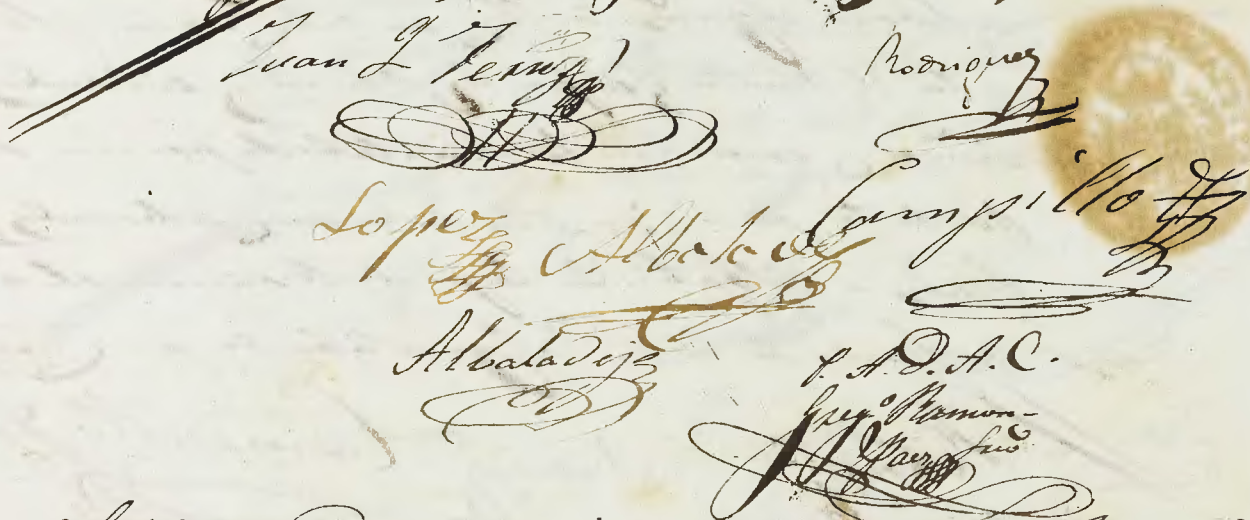 Juan L Ferruz
Rodriquez
Lopez Albaladejo Campillo
Albaladejo
P. A. D. A. C.
Greg.º Ramon
Paez Srio